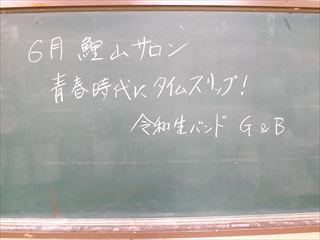 6月 鯉山サロン
青春時代にタイムスリップ!
令和生バンド G&B